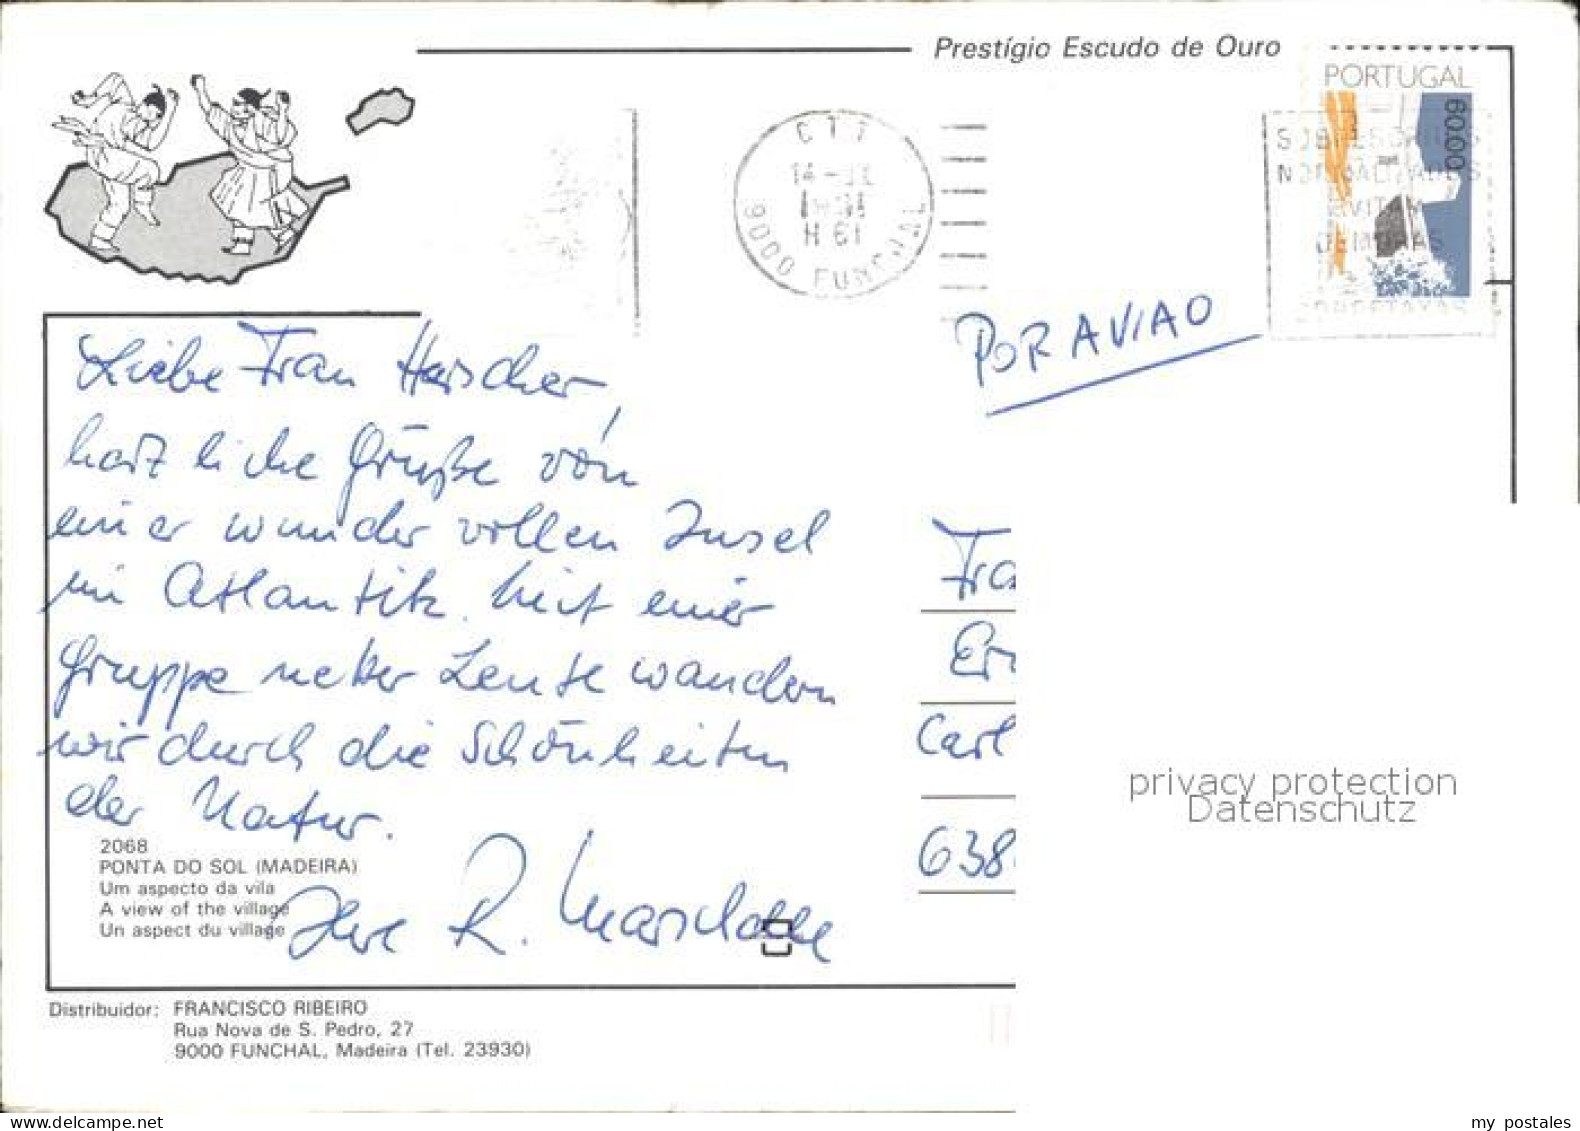 Prestígio Escudo de Ouro
PORTUGAL
60.00
CTT
9000 FUNCHAL
SOBRESCRITOS
NORMALIZADOS
EVITAM
DEMORAS
POR AVIAO
Liebe Frau Herscher,
herzliche Grüße von
einer wundervollen Insel
im Atlantik. Mit einer
Gruppe netter Leute wandern
wir durch die Schönheiten
der Natur.
Ihre R.
Fra
Er
Carl
638
2068
PONTA DO SOL (MADEIRA)
Um aspecto da vila
A view of the village
Un aspect du village
Distribuidor: FRANCISCO RIBEIRO
Rua Nova de S. Pedro, 27
9000 FUNCHAL, Madeira (Tel. 23930)
privacy protection
Datenschutz
my postales